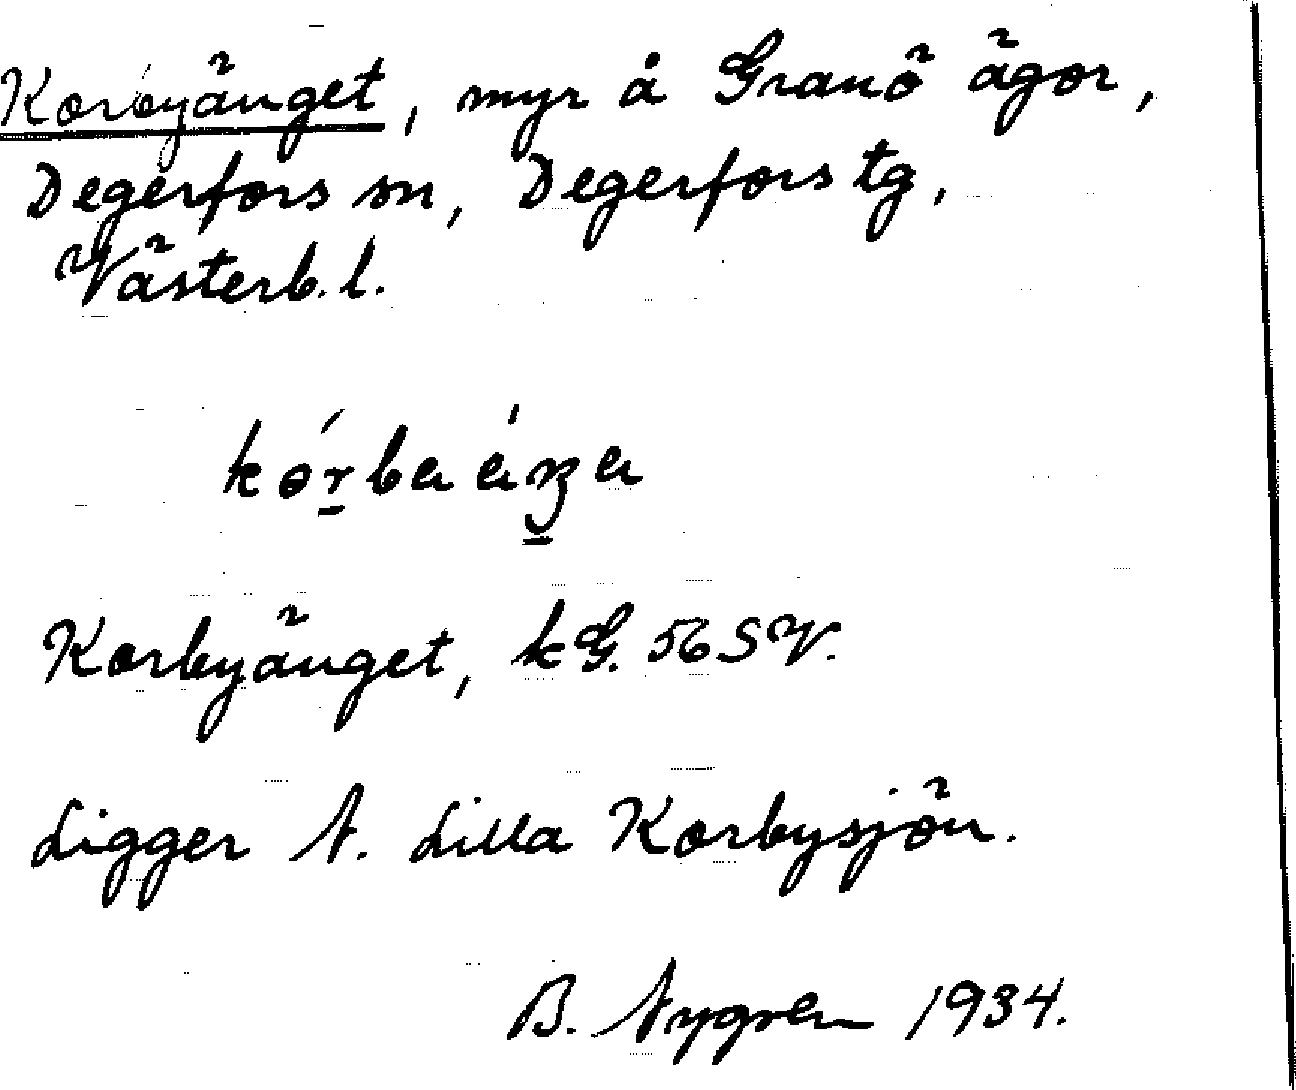 Korbyänget, myr å Granö ägor,
Degerfors sn, Degerfors tg,
Västerb. l.
Korbyänget, kG. 56 SV.
Ligger N. Lilla Korbysjön.
B. Nygren 1934.